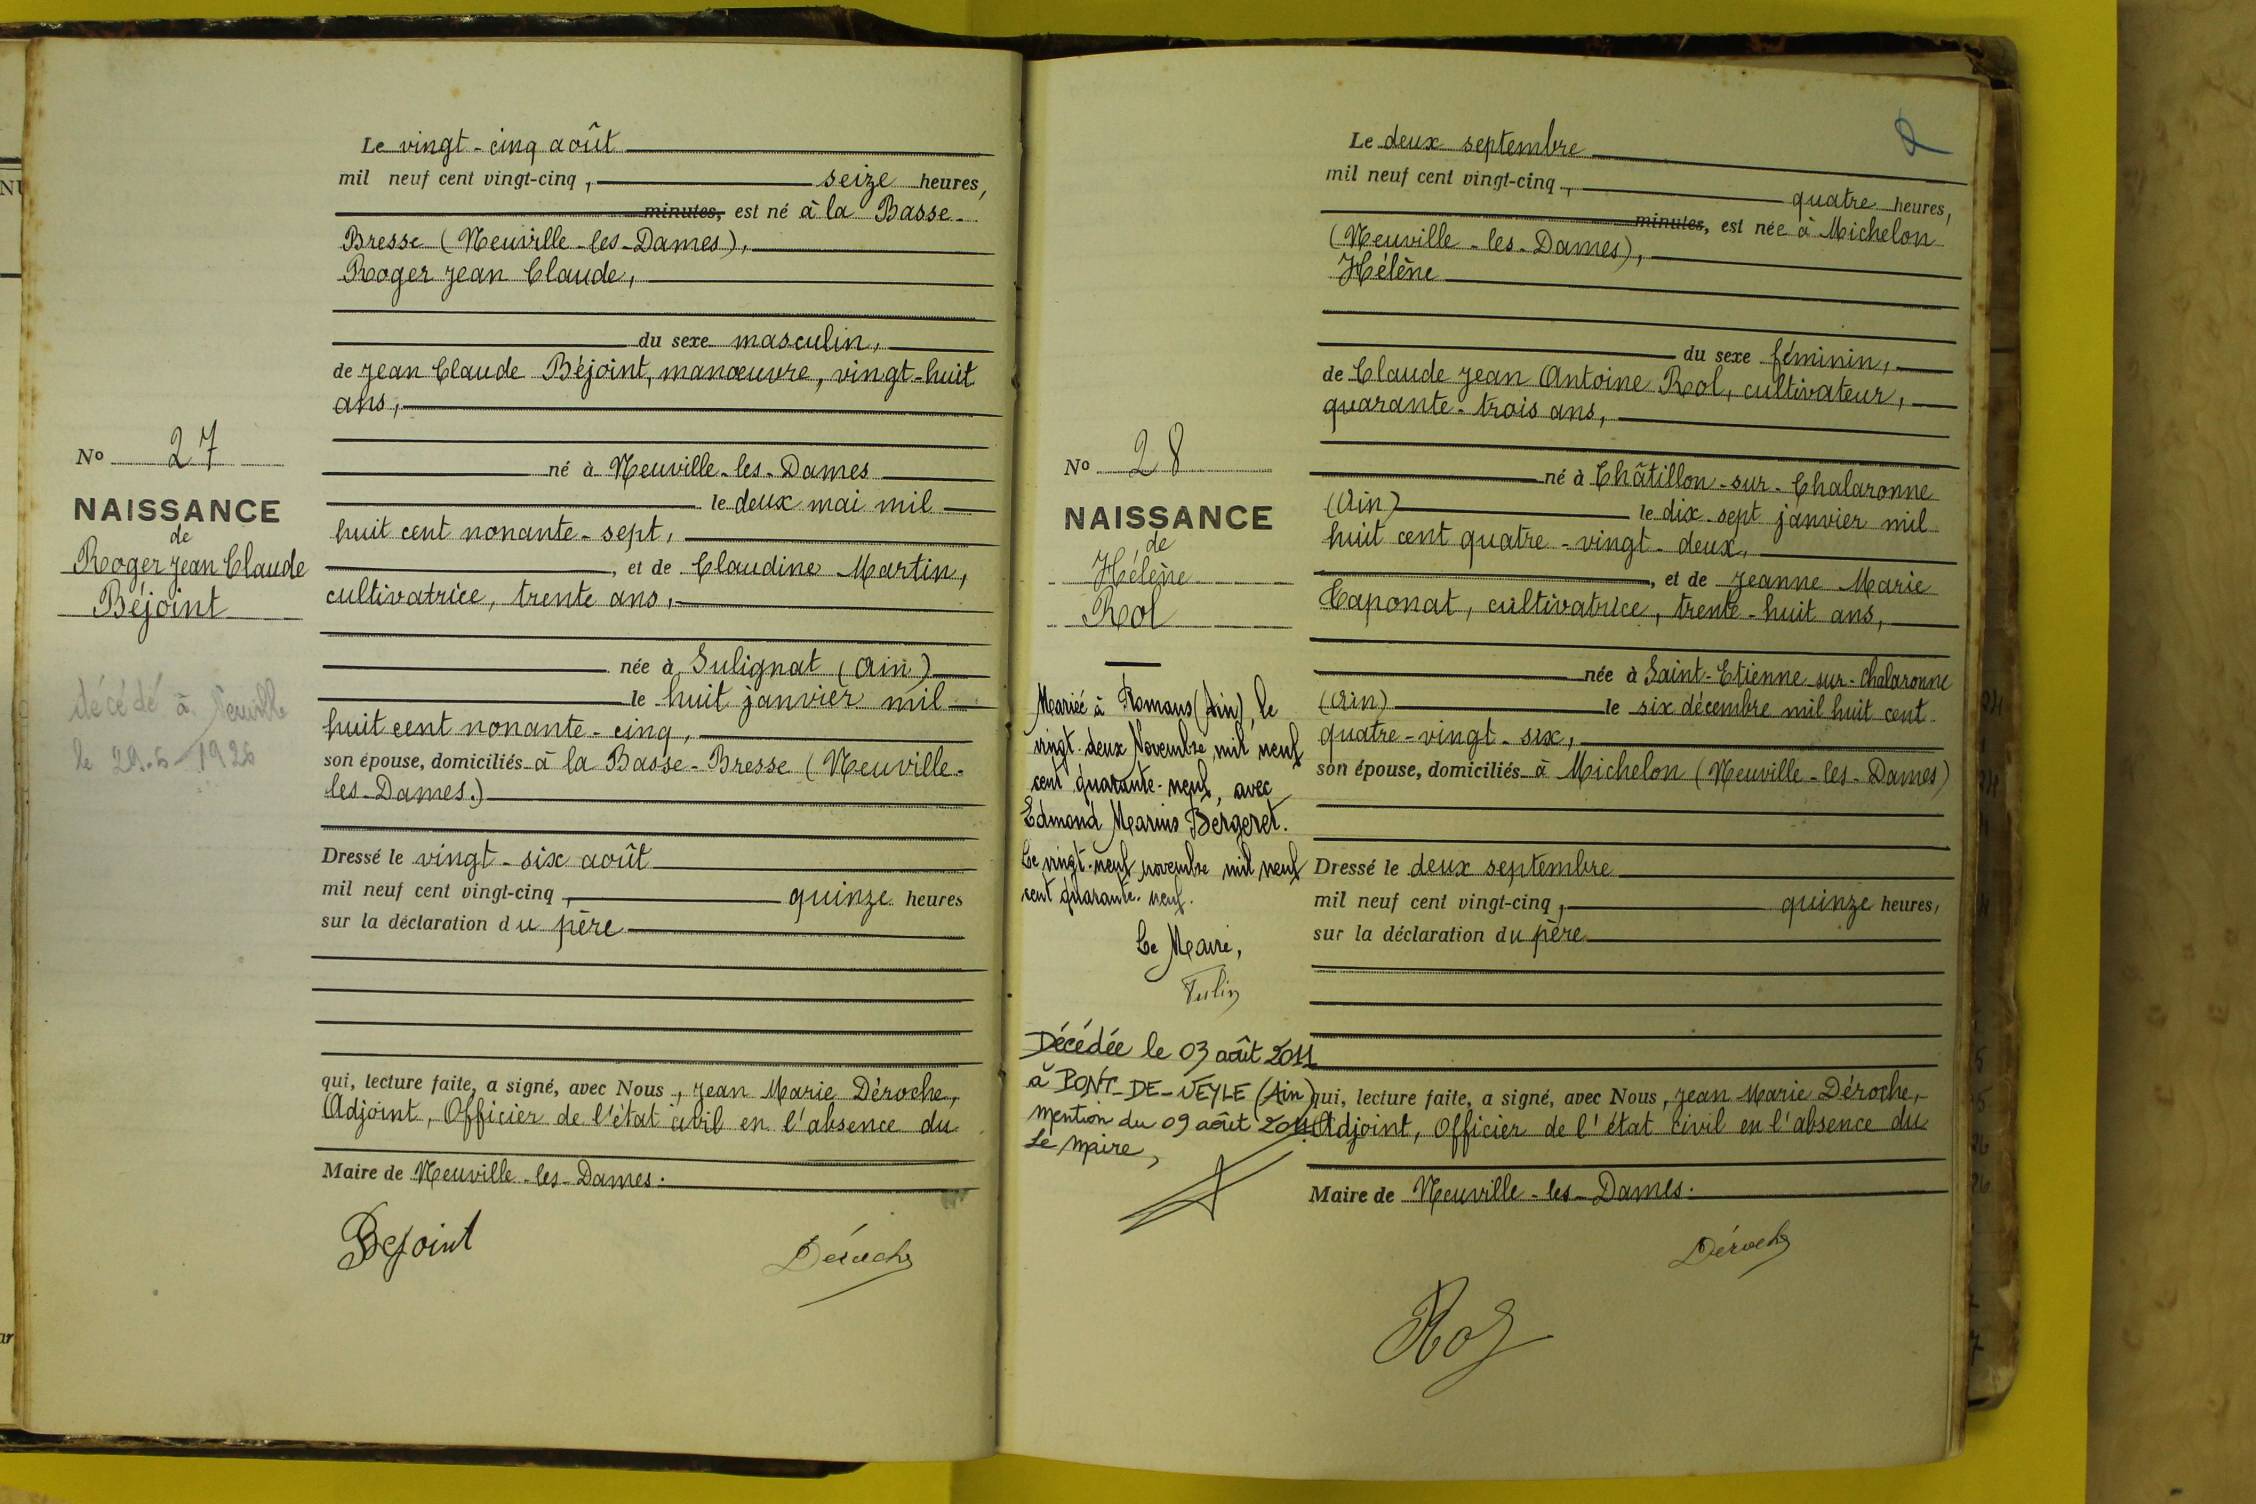 Le vingt-cinq août
mil neuf cent vingt-cinq, seize heures,
minutes, est né à la Basse-
Bresse (Neuville-les-Dames),
Roger Jean Claude,
du sexe masculin,
de Jean Claude Béjoint, manœuvre, vingt-huit
ans,
né à Neuville-les-Dames
le deux mai mil
huit cent nonante-sept,
, et de Claudine Martin,
cultivatrice, trente ans,
née à Sulignat (Ain)
le huit janvier mil
huit cent nonante-cinq,
son épouse, domiciliés à la Basse-Bresse (Neuville-
les-Dames.)
Dressé le vingt-six août
mil neuf cent vingt-cinq, quinze heures
sur la déclaration du père
qui, lecture faite, a signé, avec Nous, Jean Marie Déroche,
Adjoint, Officier de l'état civil en l'absence du
Maire de Neuville-les-Dames.
Bejoint Déroche
No 27
NAISSANCE
de
Roger Jean Claude
Béjoint
décédé à Neuville
le 29.6-1926
Le deux septembre
mil neuf cent vingt-cinq, quatre heures,
minutes, est née à Michelon
(Neuville-les-Dames),
Hélène
du sexe féminin,
de Claude Jean Antoine Rol, cultivateur,
quarante-trois ans,
né à Châtillon-sur-Chalaronne
(Ain) le dix sept janvier mil
huit cent quatre-vingt-deux,
, et de Jeanne Marie
Taponat, cultivatrice, trente-huit ans,
née à Saint-Etienne-sur-Chalaronne
(Ain) le six décembre mil huit cent
quatre-vingt-six,
son épouse, domiciliés à Michelon (Neuville-les-Dames)
Dressé le deux septembre
mil neuf cent vingt-cinq, quinze heures,
sur la déclaration du père
qui, lecture faite, a signé, avec Nous, Jean Marie Déroche,
Adjoint, Officier de l'état civil en l'absence du
Maire de Neuville-les-Dames.
Déroche
Rol
No 28
NAISSANCE
de
Hélène
Rol
Mariée à Romans (Ain), le
vingt-deux Novembre mil neuf
cent quarante-neuf, avec
Edmond Marius Bergeret.
Le vingt-neuf novembre mil neuf
cent quarante-neuf.
Le Maire,
Décédée le 03 août 2011
à PONT-DE-VEYLE (Ain)
Mention du 09 août 2011
Le Maire,